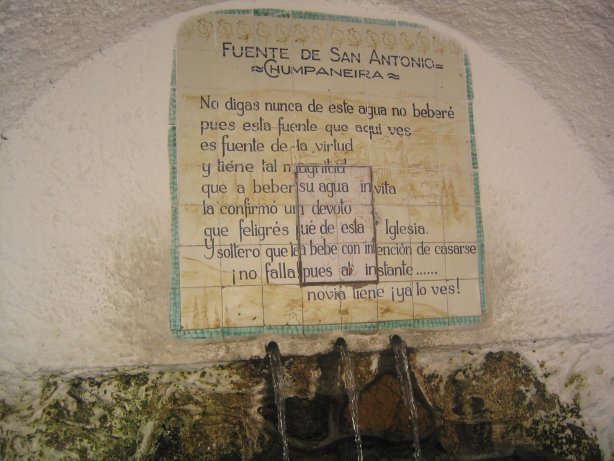 FUENTE DE SAN ANTONIO
≈CHUMPANEIRA≈
No digas nunca de este agua no beberé
pues esta fuente que aqui ves
es fuente de la virtud
y tiene tal magnitud
que a beber su agua invita
la confirmó un devoto
que feligrés ué de esta Iglesia.
Y soltero que la bebe con intención de casarse
¡no falla! pues al instante......
novia tiene ¡ya lo ves!